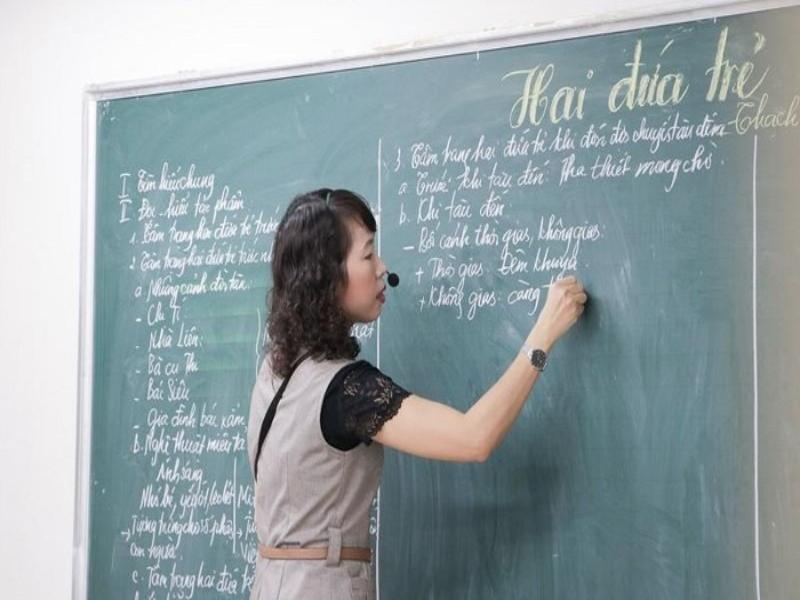 Hai đứa trẻ
Thạch
I Tìm hiểu chung
II Đọc - hiểu tác phẩm
1. Tâm trạng hai đứa trẻ trước
2. Tâm trạng hai đứa trẻ trước
a. Những cảnh đời tàn:
- Chị Tí
- Nhà Liên:
- Bà cụ Thi
- Bác Siêu
- Gia đình bác xẩm
b. Nghệ thuật miêu tả
Ánh sáng
Nhỏ bé, yếu ớt, leo lét
→ Tượng trưng cho số phận
con người.
c. Tâm trạng hai đứa trẻ
3 Tâm trạng hai đứa trẻ khi đón đợi chuyến tàu đêm
a. Trước khi tàu đến: Tha thiết mong chờ
b. Khi tàu đến
- Bối cảnh thời gian, không gian:
+ Thời gian: Đêm khuya
+ Không gian: càng